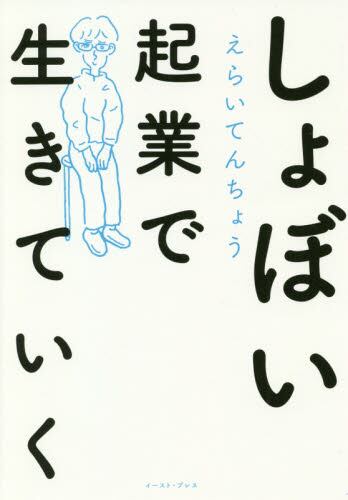 しょぼい
えらいてんちょう
起業で
生きていく
イースト・プレス